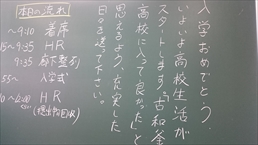 入学おめでとう。
いよいよ高校生活が
スタートします。「古和釜
高校に入って良かった」と
思えるよう、充実した
日々を送って下さい。
本日の流れ
～9:10 着席
15～9:35 HR
9:35 廊下整列
55～ 入学式
HR